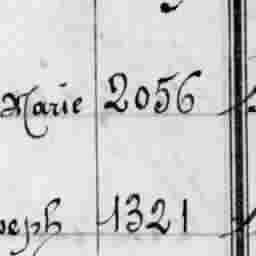 Marie 2056
seph 1321